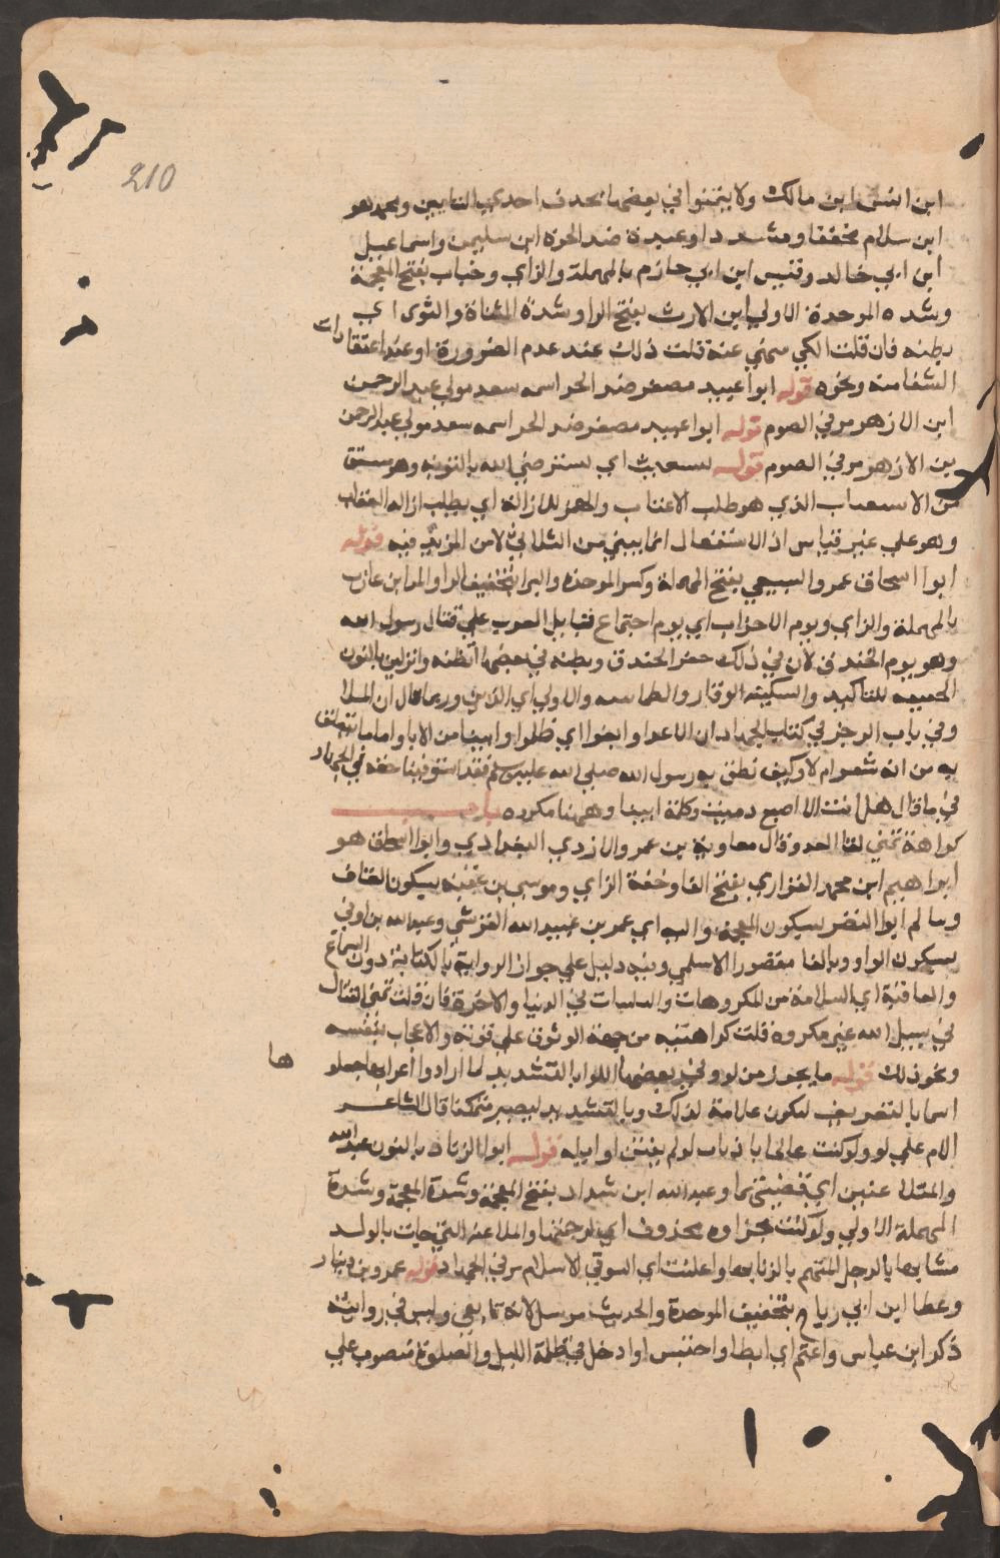 210
ابن انس ابن مالك ولا يتمنوا في بعضها بحذف احدى التايين ومحمد هو
ابن سلام مخففا ومشددا وعبدة ضد الحرة ابن سليمن واسماعيل
ابن ابي خالد وقيس ابن ابي حازم بالمهملة والزاي وخباب بفتح المعجمة
وشده الموحدة الاولي ابن الارت بفتح الرا وشدة المثناة والثوى اى
بطنه فان قلت الكي منهي عنه قلت ذلك عند عدم الضرورة او عند اعتقاد ان
الشفا منه ونحوه قوله ابوا عبيد مصغر ضد الحر اسمه سعد مولي عبد الرحمن
ابن الازهر مر في الصوم قوله ابوا عبيد مصغر ضد الحر اسمه سعد مولي عبد الرحمن
بن الازهر مر في الصوم قوله يستعتب اي يسترضي الله بالتوبه وهو مشتق
من الاستعتاب الذي هو طلب الاعتاب والهمز للازالة اي يطلب ازالة العتاب
وهو علي غير قياس اذ الاستفعال انما يبني من الثلاثي لا من المزيد فيه قوله
ابوا اسحاق عمرو السبيعي بفتح المهملة وكسر الموحدة والبرا بتخفيف الرا والمد ابن عازب
بالمهملة والزاي ويوم الاحزاب اي يوم اجتماع قبايل العرب علي قتال رسول الله
وهو يوم الخندق لان في ذلك حفر الخندق وبطنه في بعضها ابطنه وانزلن بالنون
الخفيفه للتاكيد والسكينة الوقار والطمانينه والاولي اي الذين وربما قال ان الملا
وفي باب الرجز في كتاب الجهاد ان الاعدا وابغوا اي ظلموا وابينا من الابا واما ما يتعلق
به من انه شعر ام لا وكيف نطق به رسول الله صلي الله عليه وسلم فقد استوفينا حقه في الجهاد
في ما قال هل انت الا اصبع دميت وكلمة ابينا وههنا مكرره باب
كراهة تمني لقا العدو قال معاوية بن عمرو الازدي البغدادي وابوا اسحاق هو
ابراهيم ابن محمد الفزاري بفتح الفا وخفة الزاي وموسي بن عقبه بسكون القاف
وسالم ابوا النضر بسكون المعجمه والب اي عمر بن عبيد الله القرشي وعبد الله بن اوفي
بسكون الواو وبالفا مقصورا الاسلمي وفيه دليل علي جواز الرواية بالكتابة دون السماع
والعافية اي السلامة من المكروهات والبليات في الدنيا والاخرة فان قلت تمني القتال
في سبيل الله غير مكروه قلت كراهته من جهة الوثوق علي قوته والاعجاب بنفسه
ونحو ذلك قوله ما يجوز من لو وفي بعضها اللو بالتشديد لما ارادوا اعرابها جعلو
ها
اسما بالتعريف لتكون علامة لذلك وبالتشديد ليصير متمكنا قال الشاعر
الام علي لو ولو كنت عالما باذناب لو لم يفتني اوايله قوله ابوا الزناد بالنون عبد الله
والمتلاعنين اي قضيتهما وعبد الله ابن شداد بفتح المعجمة وشدة المهملة وشدة
المهملة الاولي ولو كنت جزاوه محذوف اي لرجمتها والملاعنه التي جات بالولد
مشابها بالرجل المتهم بالزنا بها واعلنت اي السوق الاسلام مر في الجهاد قوله عمرو بن دينار
وعطا ابن ابي رباح بتخفيف الموحدة والحديث مرسل لانه تابعي وليس في روايته
ذكر ابن عباس واعتم اي ابطا واحتبس او ادخل في ظلمة الليل والصلوة منصوب علي